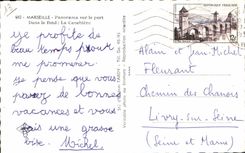 982 - MARSEILLE - Panorama sur le port
Dans le fond : La Canebière
je profite de
beau temps pour
me promener
je pense que vous
passez de bonnes
vacances et vous
fais une grosse
bise. Michel
Alain et Jean-Michel
Fleurant
Chemin des Chanois
Livry-sur-Seine
(Seine et Marne)